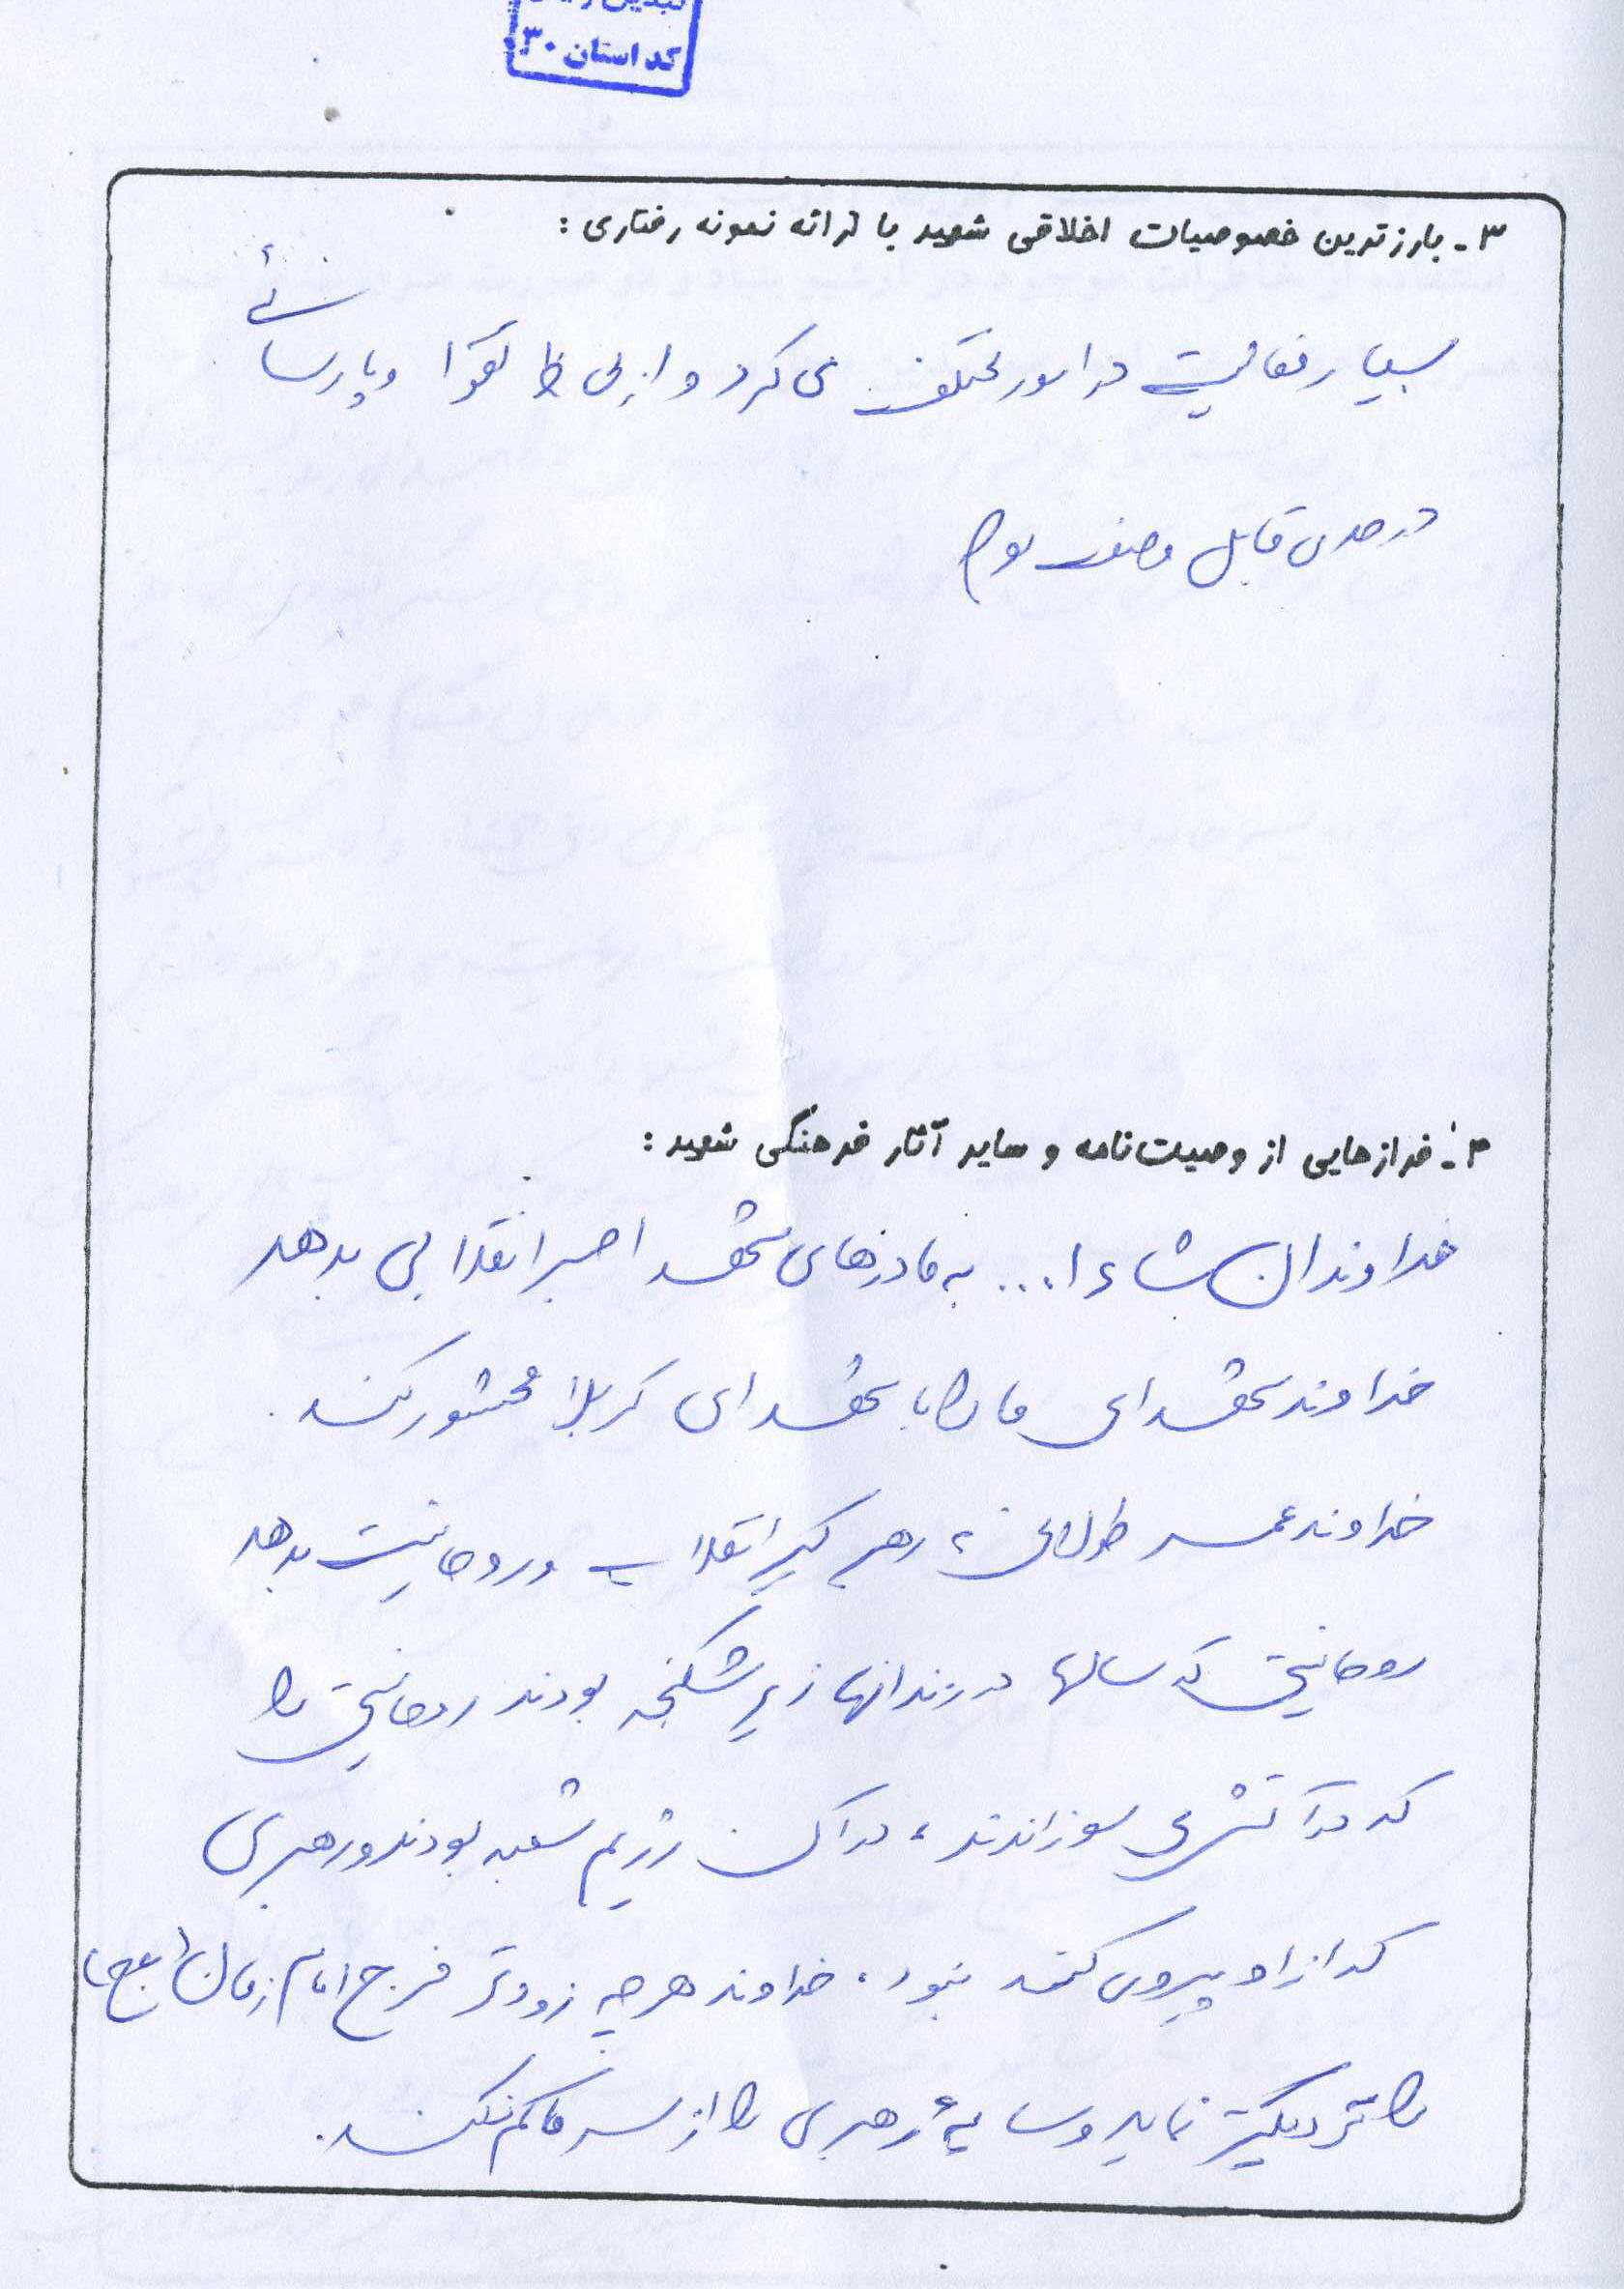 کد استان ۳۰
۳- بارزترین خصوصیات اخلاقی شهید با ارائه نمونه رفتاری:
بسیار فعالیت در امور مختلف می کرد و از لحاظ تقوا و پارسائی
در حدی قابل وصف بود
۴- فرازهایی از وصیت‌نامه و سایر آثار فرهنگی شهید:
خداوند ان شاء ا... به مادرهای شهدا صبر انقلابی بدهد
خداوند شهدای ما را با شهدای کربلا محشور کند.
خداوند عمر طولانی به رهبر کبیر انقلاب و روحانیت بدهد
روحانیتی که سالها در زندانها زیر شکنجه بودند روحانیتی را
که در آتش سوزاندند، در رژیم بودند و رهبری
که از او پیروی کنند نبود، خداوند هر چه زودتر فرج امام زمان (عج)
را نزدیکتر نماید و سایهٔ رهبری را از سر ما کم نکند.